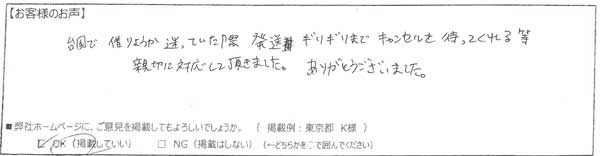 【お客様のお声】
借りようか 迷っていた際 発送ギリギリまで キャンセルを 待ってくれる 等
親切に対応して頂きました。 ありがとうございました。
■弊社ホームページに、ご意見を掲載してもよろしいでしょうか。 ( 掲載例：東京都 K様 )
□ OK (掲載していい) □ NG (掲載はしない) (←どちらかを○で囲んでください)